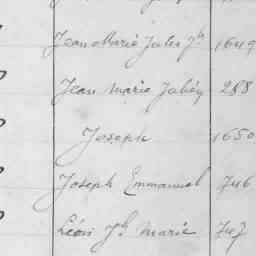 Jean Marie Jules Jh 1649
Jean Marie Julien 288
Joseph 1650
Joseph Emmanuel 746
Léon Jh Marie 747